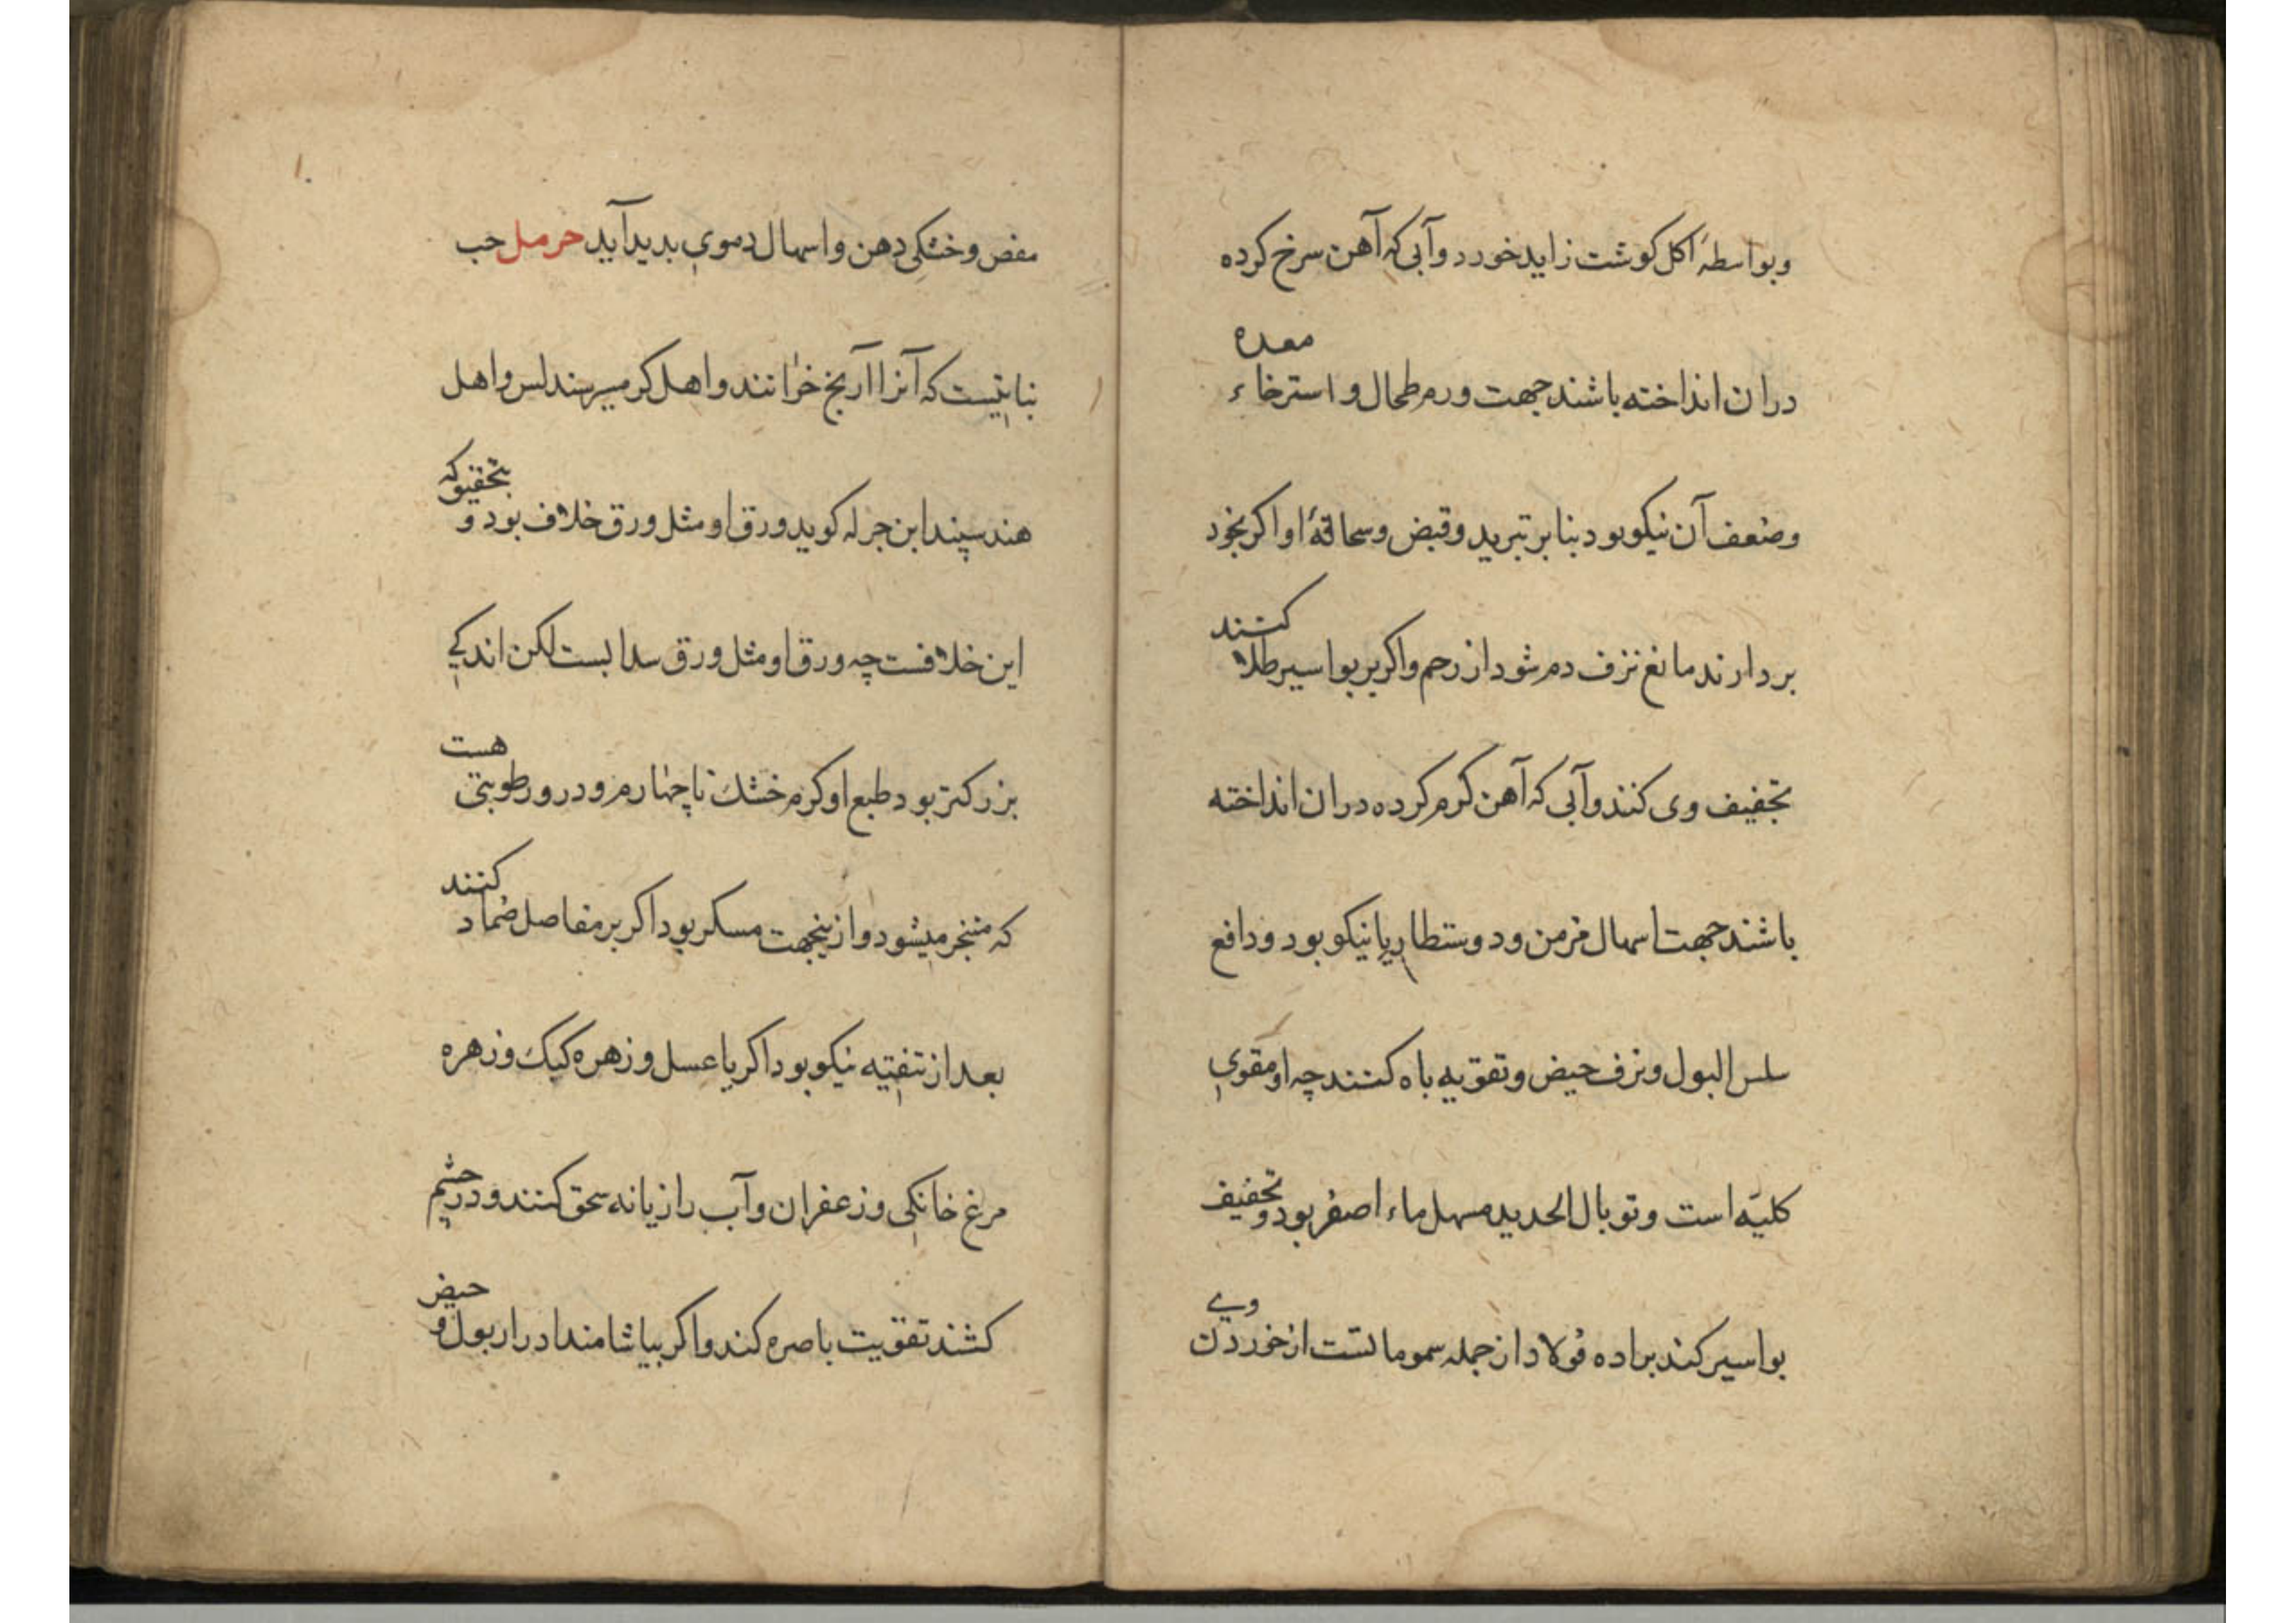 وبواسطۀ اکل کوشت زاید خورد وآبی که آهن سرخ کرده
دران انداخته باشند جهت ورم طحال و استرخاء معده
وضعف آن نیکو بود بنا بر تبرید وقبض وسحاقۀ او اکر بخود
بردارند مانع نزف دم شود از رحم واکر بر بواسیر طلا کنند
تجفیف وی کنند وآبی که آهن کرم کرده دران انداخته
باشند جهت اسهال مزمن ودوسنطاریا نیکو بود ودافع
سلس البول ونزف حیض وتقویه باه کنند چه او مقوی
کلیه است وتوبال الحدید مسهل ماء اصفر بود وتجفیف
بواسیر کند براده فولاد از جمله سموماتست از خوردن وی
مغص وخشکی دهن واسهال دموی بدید آید حرمل حب
نباتیست که آنرا خوانند واهل کرمسیر واهل
هند سپند ابن جزله کوید ورق او مثل ورق خلاف بود و بتحقیق که
این خلافست چه ورق او مثل ورق سدابست لکن اندکی
بزرکتر بود طبع او کرم خشک تا چهارم ودرو رطوبتی هست
که متبخر میشود وازینجهت مسکر بود اکر بر مفاصل ضماد کنند
بعد از تنقیه نیکو بود اکر با عسل وزهره کبک وزهره
مرغ خانکی وزعفران وآب رازیانه سحق کنند ودر چشم
کشند تقویت باصره کند واکر بیاشامند ادرار بول و حیض